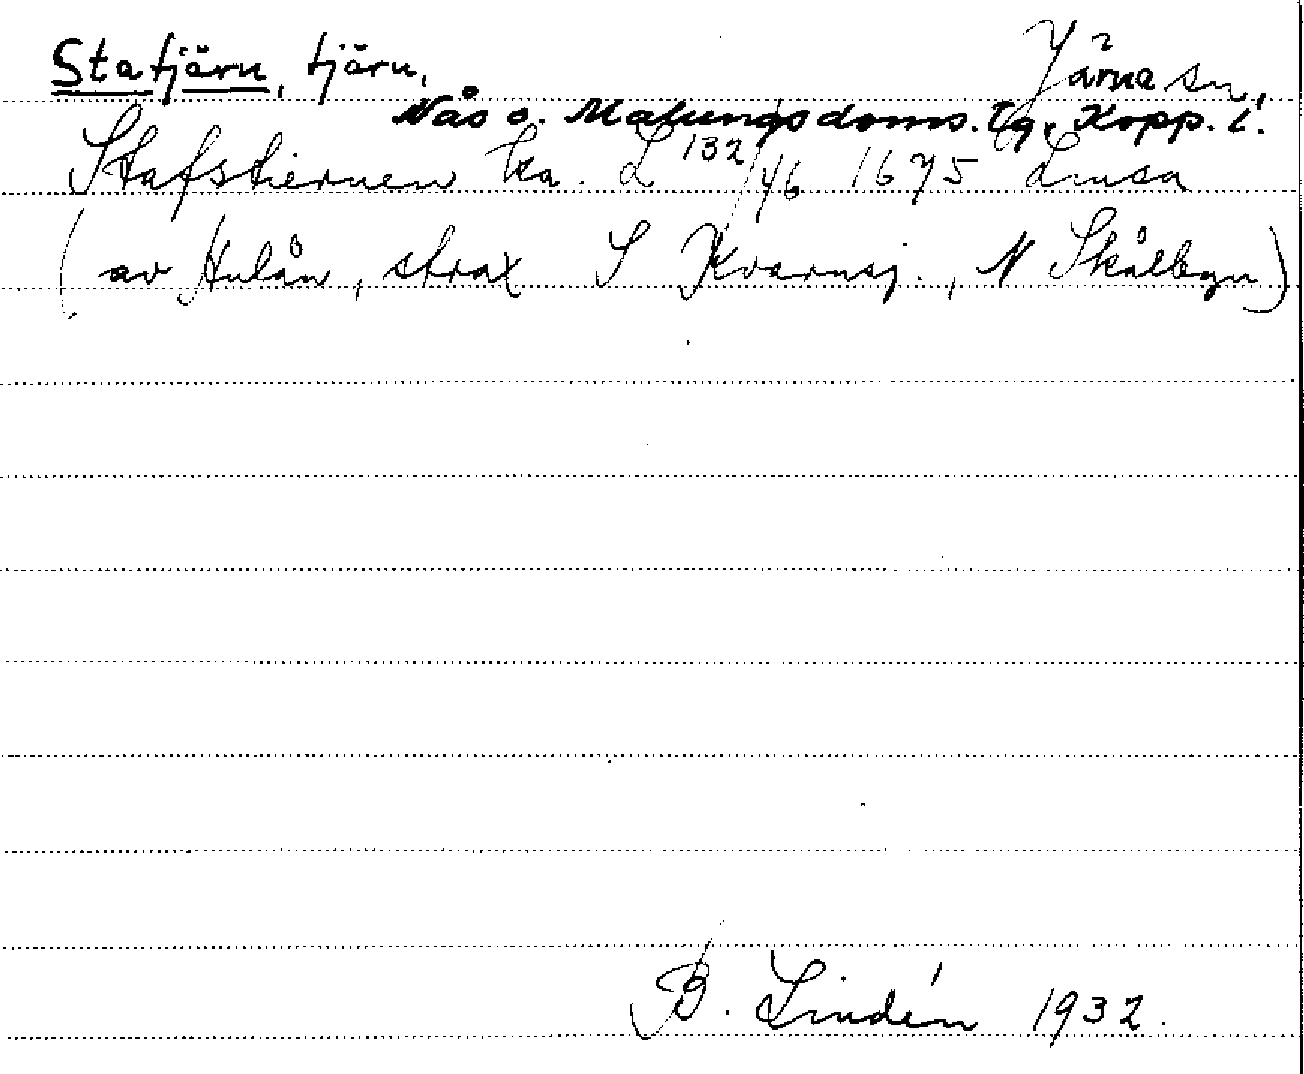 Statjärn, tjärn, Järna sn,
Nås o. Malungs doms. tg, Kopp. l.
Stafstiernen ka. L 132/46 1675 Lmsa
(av Hulån, strax S Kvarnsj., N Skålbyn)
B. Lindén 1932.